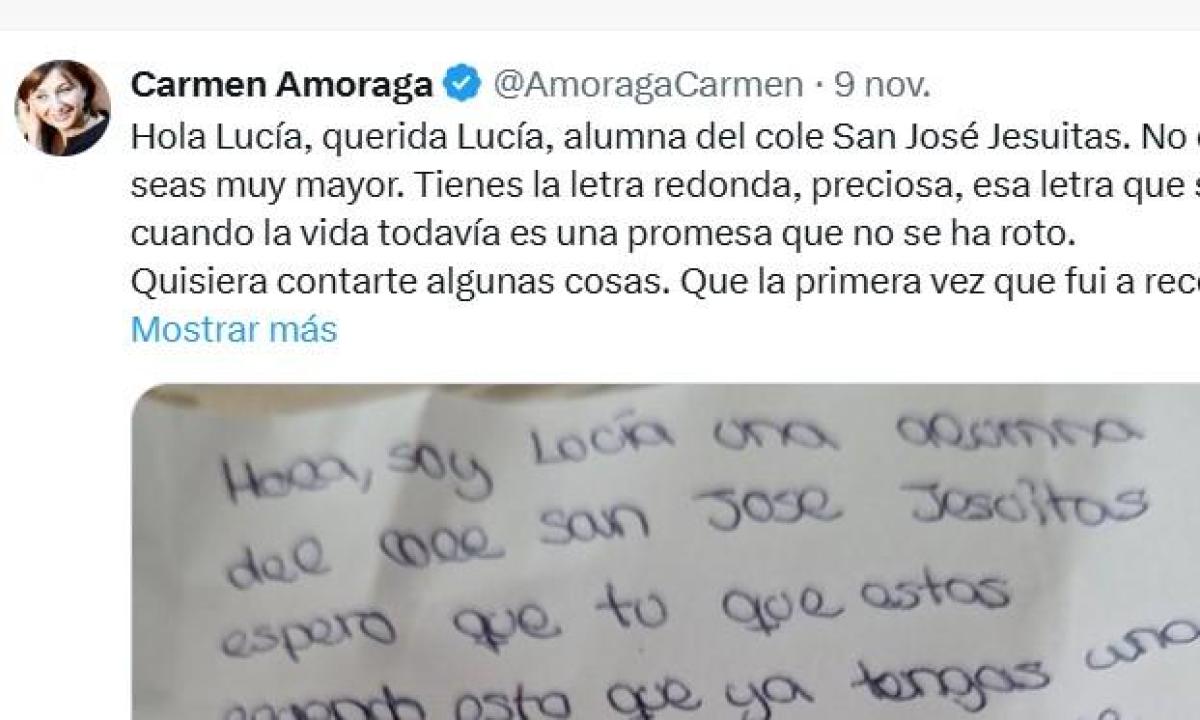 Carmen Amoraga @AmoragaCarmen · 9 nov.
Hola Lucía, querida Lucía, alumna del cole San José Jesuitas. No
seas muy mayor. Tienes la letra redonda, preciosa, esa letra que
cuando la vida todavía es una promesa que no se ha roto.
Quisiera contarte algunas cosas. Que la primera vez que fui a
Mostrar más
Hola, soy Lucía una alumna
del cole san Jose Jesuitas
espero que tu que estas
esto que ya tengas una